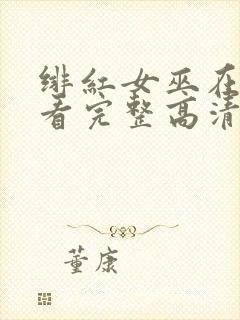 绯红女巫在
看完整高清
董康